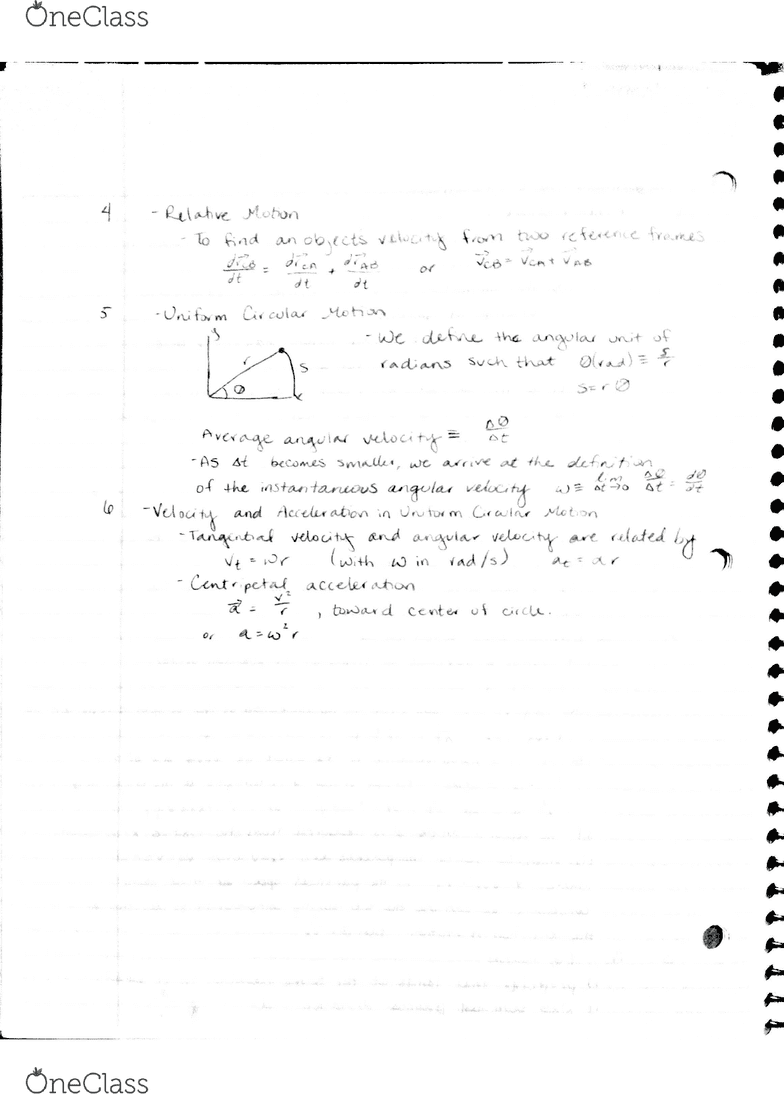 OneClass
4 - Relative Motion
- To find an objects velocity from two reference frames
dr⃗CB/dt = dr⃗CA/dt + dr⃗AB/dt or v⃗CB = v⃗CA + v⃗AB
5 - Uniform Circular Motion
y
- We define the angular unit of
r s θ x
radians such that θ(rad) ≡ s/r
s = r θ
Average angular velocity ≡ Δθ/Δt
- As Δt becomes smaller, we arrive at the definition
of the instantaneous angular velocity ω ≡ lim Δt→0 Δθ/Δt = dθ/dt
6 - Velocity and Acceleration in Uniform Circular Motion
- Tangential velocity and angular velocity are related by
vt = ωr (with ω in rad/s) at = αr
- Centripetal acceleration
a⃗ = v²/r , toward center of circle.
or a = ω²r
OneClass